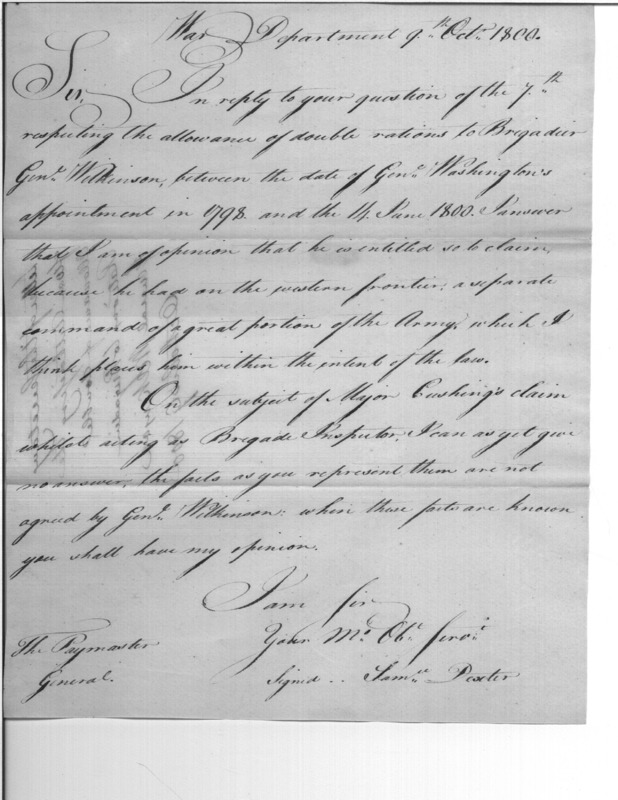 War Department 9th Octr. 1800.
Sir,
In reply to your question of the 7th.
respecting the allowance of double rations to Brigadier
Genl. Wilkinson, between the date of Genl. Washington's
appointment in 1798 and the 14. June 1800. I answer
that I am of opinion that he is entitled so to claim,
because he had on the western frontier, a separate
command of a great portion of the Army, which I
think places him within the intent of the law.
On the subject of Major Cushing's claim
whilst acting as Brigade Inspector, I can as yet give
no answer, the facts as you represent them are not
agreed by Genl. Wilkinson: when those facts are known
you shall have my opinion.
I am Sir
Your Mo. Obt. Servt.
Signed .. Saml. Dexter
The Paymaster
General.